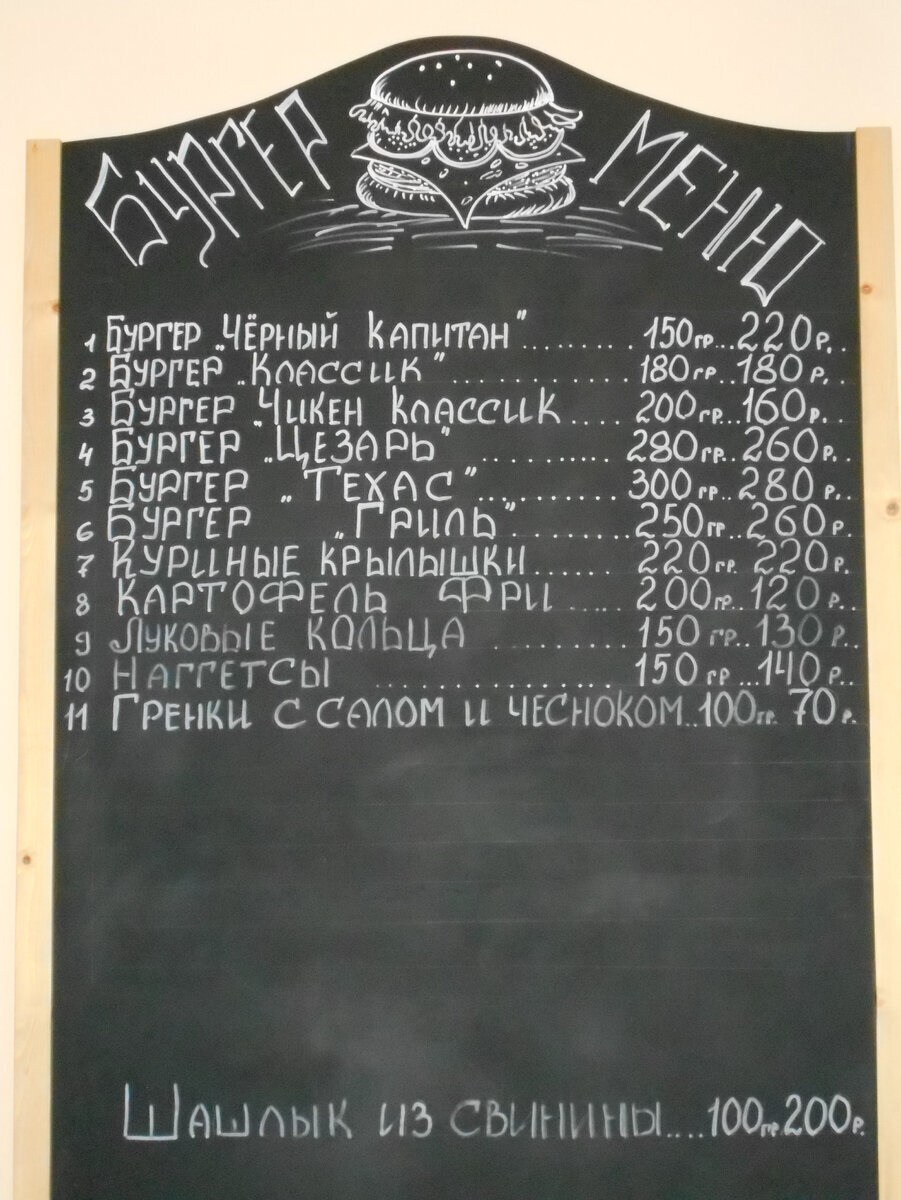 БУРГЕР МЕНЮ
1 БУРГЕР „ЧЁРНЫЙ КАПИТАН"......... 150гр...220р..
2 БУРГЕР „КЛАССИК"............... 180гр..180р...
3 БУРГЕР „ЧИКЕН КЛАССИК .... 200гр...160р..
4 БУРГЕР „ЦЕЗАРЬ" .......... 280гр..260р..
5 БУРГЕР „ТЕХАС"............ 300гр..280р..
6 БУРГЕР „ГРИЛЬ"......... 250гр..260р.
7 КУРИНЫЕ КРЫЛЫШКИ...... 220гр.220р.
8 КАРТОФЕЛЬ ФРИ ..... 200гр..120р..
9 ЛУКОВЫЕ КОЛЬЦА .......... 150гр..130р..
10 НАГГЕТСЫ .................. 150гр...140р..
11 ГРЕНКИ С САЛОМ И ЧЕСНОКОМ..100гр. 70р.
ШАШЛЫК ИЗ СВИНИНЫ....100гр.200р.